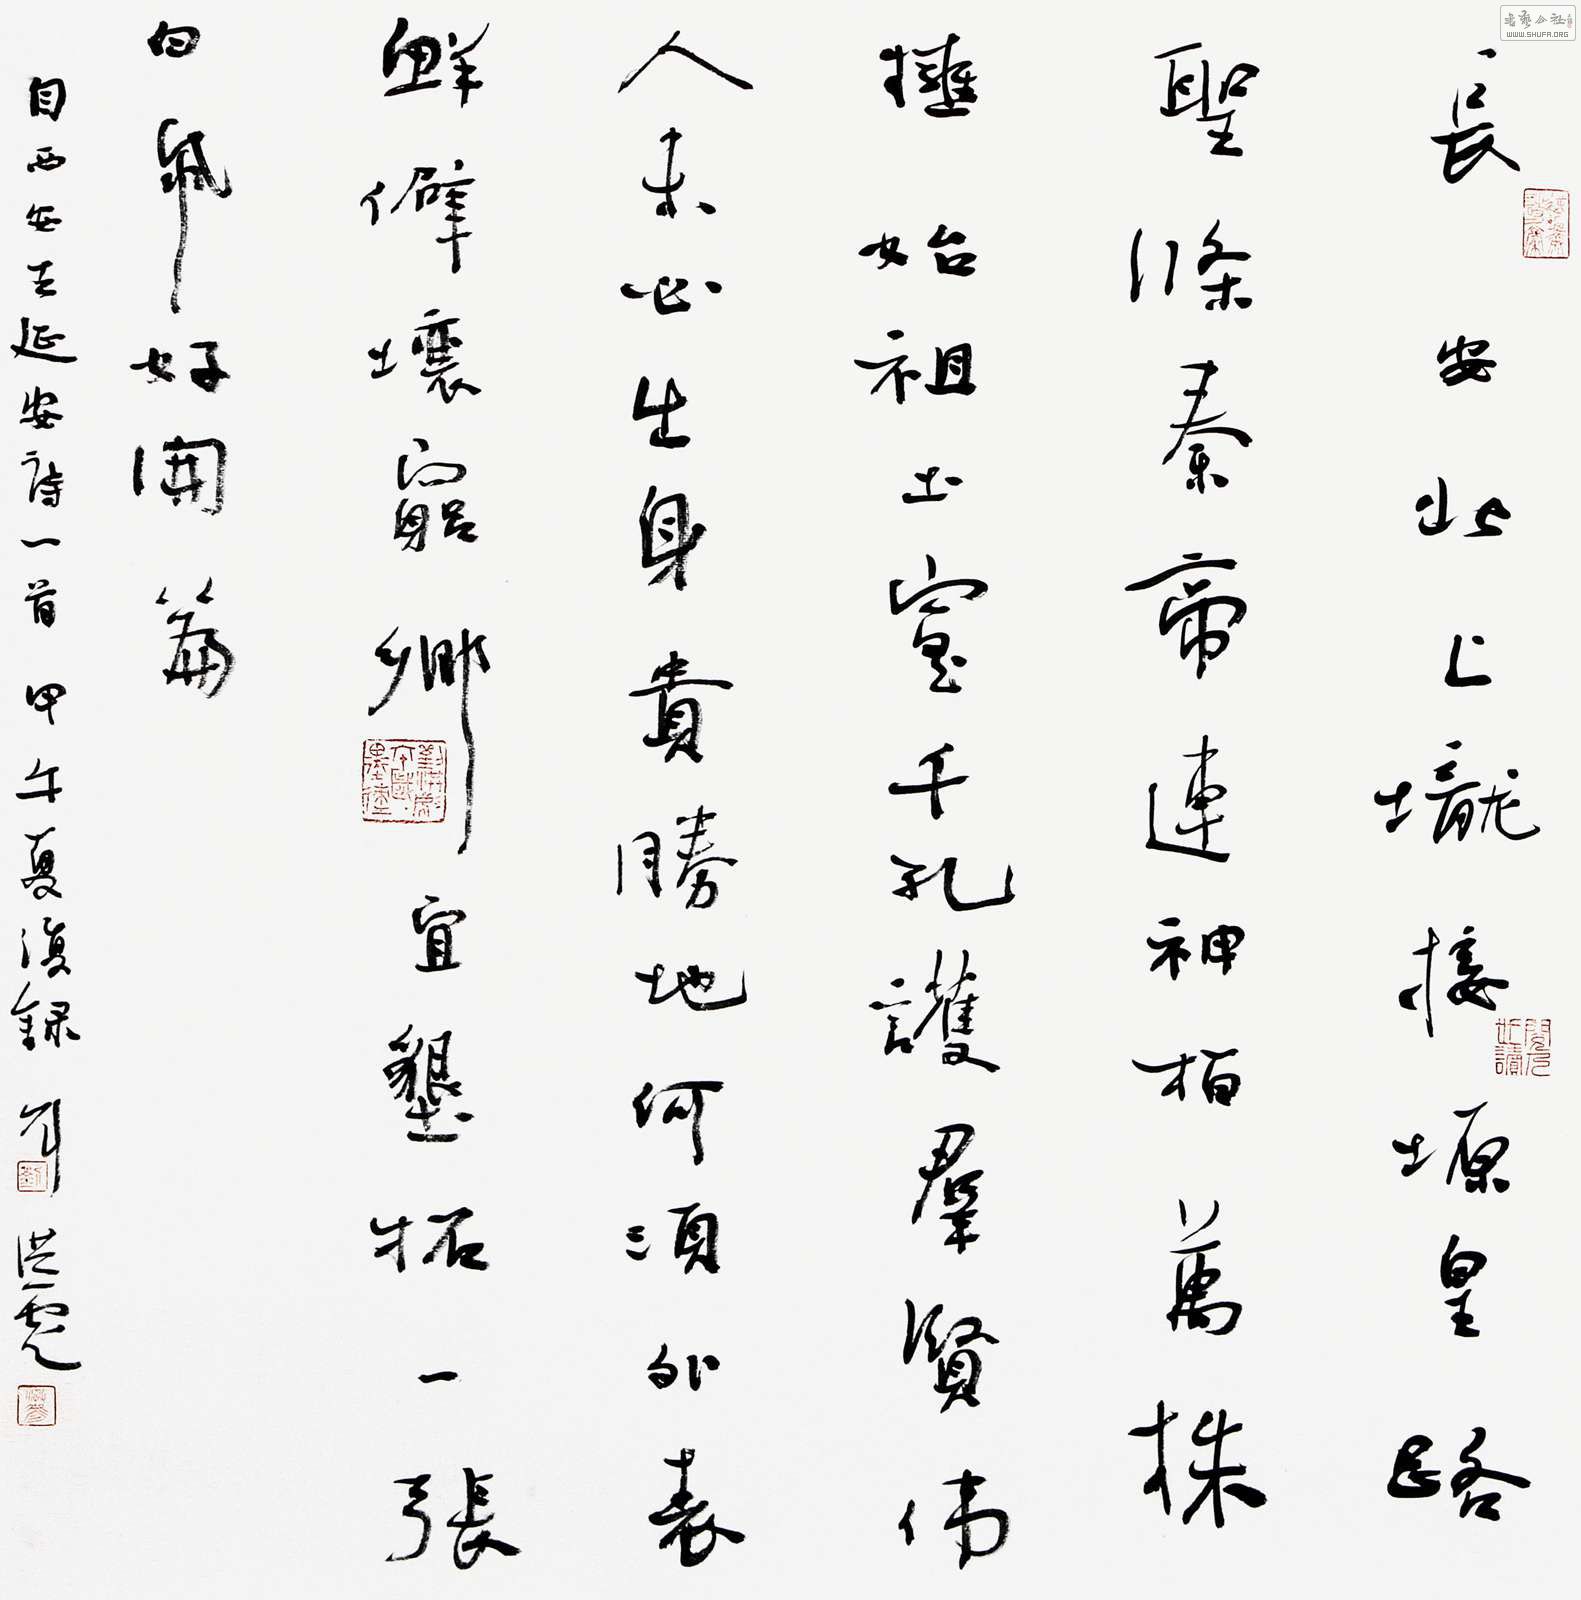 長安北上壠接塬皇路
聖條秦帝連神柏萬株
擁始祖土窰千孔護羣賢伟
人未必生身貴勝地何須外表
鮮僻壤窮鄉宜墾拓一張
白帋好開篇
自西安去延安詩一首 甲午夏復録 劉洪彪
書藝公社
WWW.SHUFA.ORG